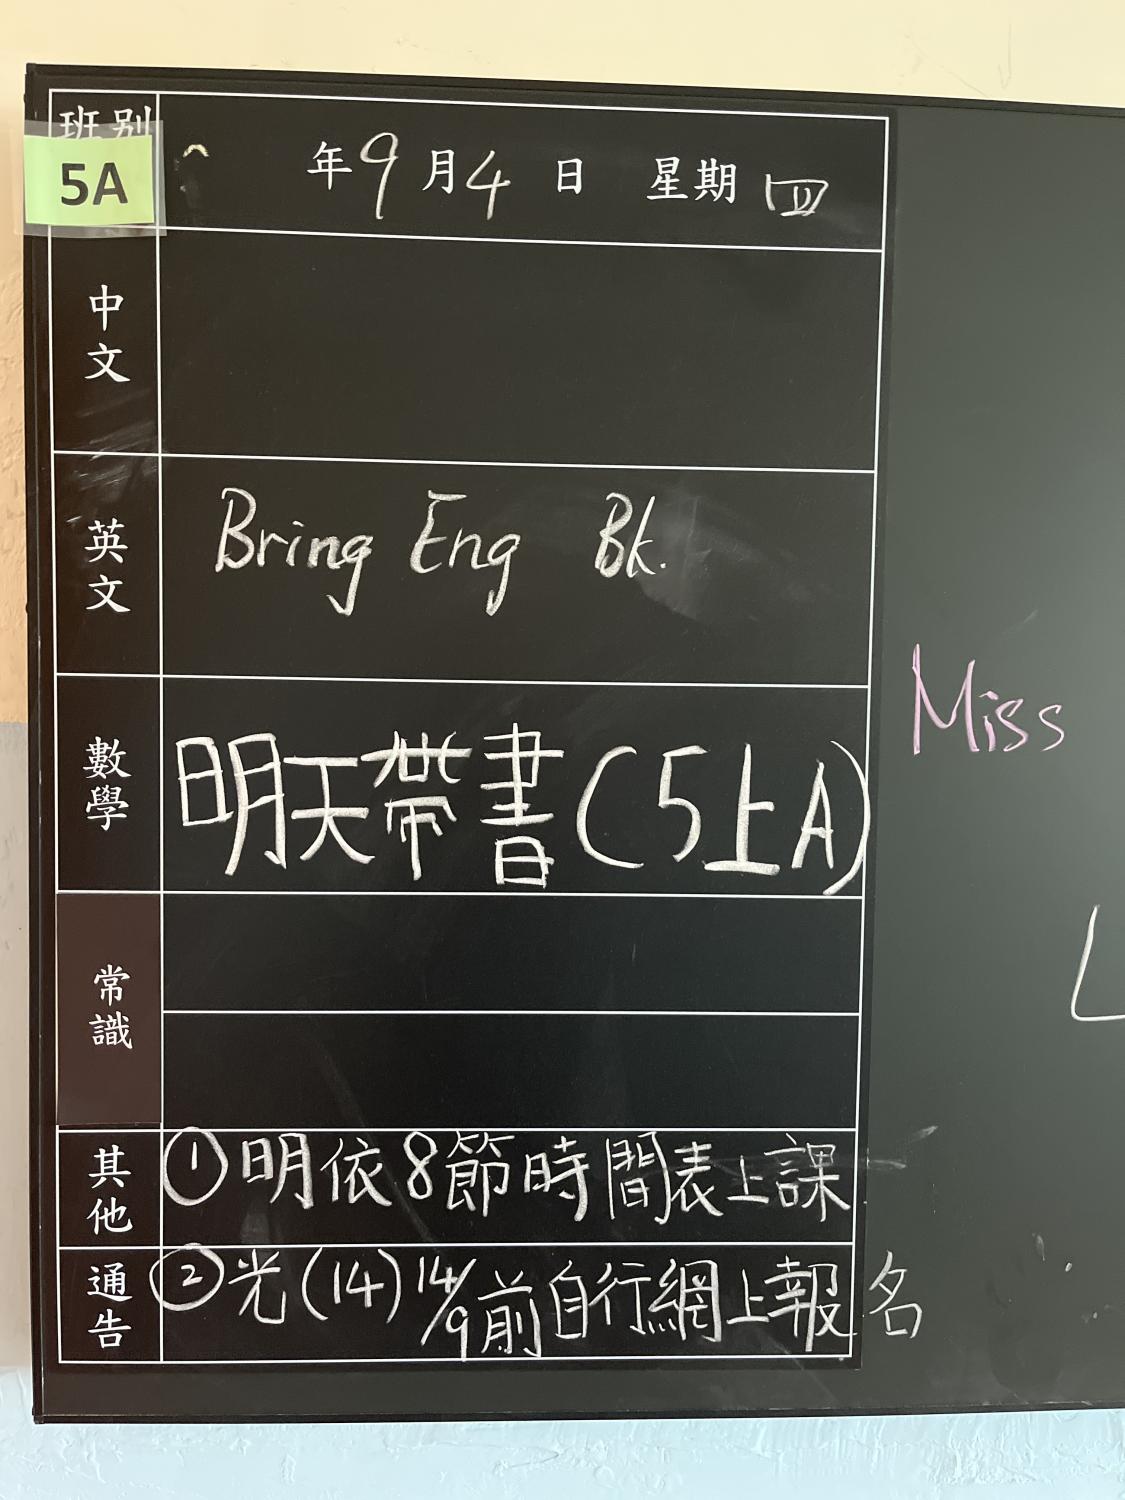 班別
5A
年9月4日 星期四
中文
英文
Bring Eng Bk.
數學
明天帶書(5上A)
常識
其他
①明依8節時間表上課
通告
②光(14)14/9前自行網上報名
Miss